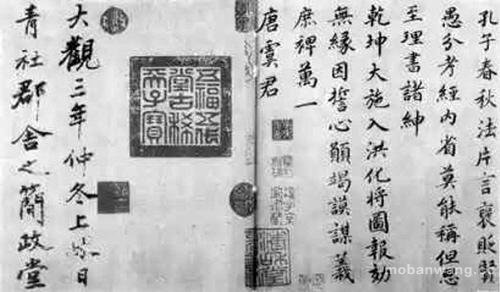 孔子春秋法片言褒貶賢
愚分考經內省莫能稱但志
至理書諸紳
乾坤大施入洪化將圖報効
無緣因誓心願竭謨謀義
庶裨萬一
唐虞君
五福五代
堂古稀
天子寶
大觀三年仲冬上日
青社郡舍之簡政堂
mobanwang.co